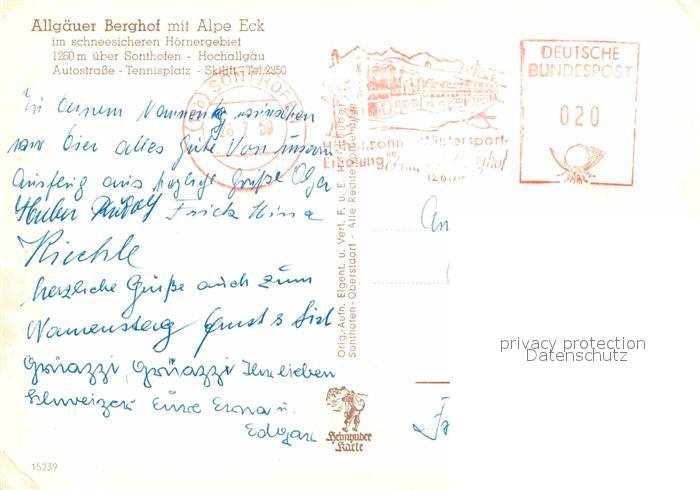 Allgäuer Berghof mit Alpe Eck
im schneesicheren Hörnergebiet
1260 m über Sonthofen - Hochallgäu
Autostraße - Tennisplatz - Skilift - Tel. 2350
SONTHOFEN
Wintersport
DEUTSCHE
BUNDESPOST
020
Zu deinem wünschen
wir Dir alles Gute. Von unserm
Ausflug aus herzliche Grüße Olga
Huber Rudolf Frick Mina
Kiechle
herzliche Grüße auch zum
Namenstag Ernst &
Grüazzi, Grüazzi Ihr lieben
Schweizer Eure Erna u.
Edgar
Orig.-Aufn. Eigent. u. Verl. F. u. E. Heimhuber
Sonthofen-Oberstdorf - Alle Rechte vorbehalten
An
Heimhuber
Karte
15239
privacy protection
Datenschutz